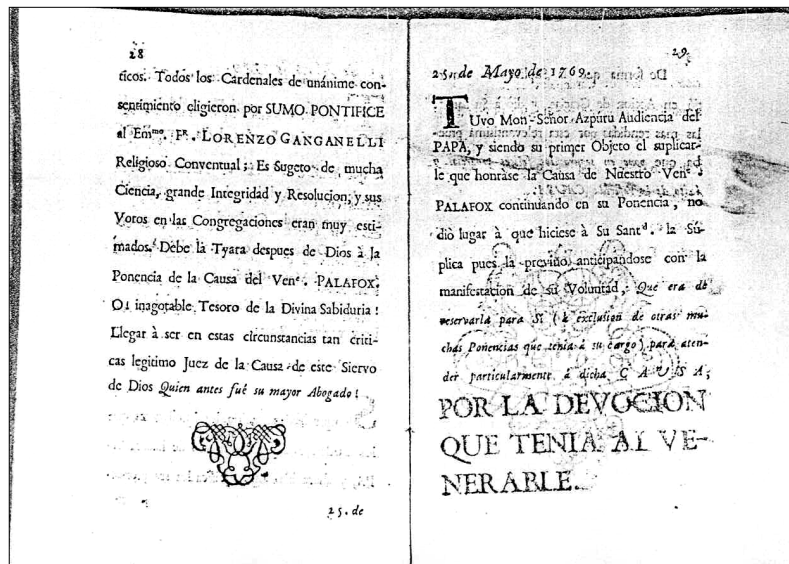 28
ticos. Todos los Cardenales de unánime con-
sentimiento eligieron por SUMO PONTIFICE
al Em.mo. FR. LORENZO GANGANELLI
Religioso Conventual; Es Sugeto de mucha
Ciencia, grande Integridad y Resolucion, y sus
Votos en las Congregaciones eran muy esti-
mados. Debe là Tyara despues de Dios à la
Ponencia de la Causa del Ven.e PALAFOX.
O! inagotable Tesoro de la Divina Sabiduria!
Llegar à ser en estas circunstancias tan criti-
cas legitimo Juez de la Causa de este Siervo
de Dios Quien antes fué su mayor Abogado!
25. de
29
25. de Mayo de 1769.
TUvo Mon-Señor Azpuru Audiencia del
PAPA, y siendo su primer Objeto el suplicar-
le que honrase la Causa de Nuestro Ven.e
PALAFOX continuando en su Ponencia, no
diò lugar à que hiciese à Su Sant.d la Sú-
plica pues la previno anticipandose con la
manifestacion de su Voluntad, Que era de
reservarla para Sí (à exclusion de otras mu-
chas Ponencias que tenia à su cargo) para aten-
der particularmente à dicha CAUSA;
POR LA DEVOCION
QUE TENIA AL VE-
NERABLE.